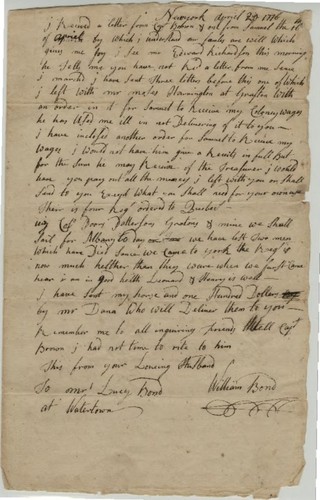 Newyork April 29 1776
i Received a letter from Brown & out from Samuel the
of april by which i understand our family are well which
gives me Joy i See mr Edward Richardson this morning
he tells me you have not Red a letter from me Since
i marched i have Sent three letters before this one of which
i left with mr moses Harrington at Grafton with
an order in it for Samuel to Receive my Coloney wages
he has Used me ill in not Delivering of it to you
i have inclosed another order for Samuel to Receive my
wages i would not have him give a Receits in full But
for the Sum he may Receive of the Treasurer i would
have you pay out all the moneys i left with you or Shall
Send to you Except what you Shall need for your own use
Their is four Regts ordered to Quebec
Colo Poors Pattersons Greatons & mine we Shall
Sail for Albany to Day we have lost Two men
which have Died Since we Came to york the Regt is
now much helthier than they ware when we first Came
hear i am in good helth Leonard & Henry is well
i have Sent my horse and one Hundred Dollers
by mr Dana Who will Deliver them to you
Remember me to all inquiring friends tell Capt
Brown i had not time to rite to him
This from your Loveing Husband
To mrs Lucy Bond William Bond
at Watertown